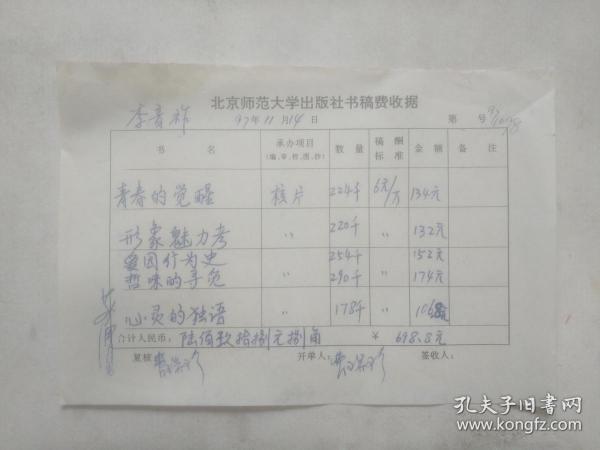 北京师范大学出版社书稿费收据
李音祚 97年11月14日 第 号
书 名 承办项目 (编、审、校、图、抄) 数量 稿酬标准 金额 备注
青春的觉醒 核片 224千 6元/万 134元
形象魅力考 〃 220千 〃 132元
爱因行为史 254千 152元
哲味的寻觅 〃 290千 〃 174元
心灵的独语 〃 178千 〃
合计人民币: 陆佰玖拾捌元捌角 ¥ 698.8元
复核: 开单人: 签收人:
孔夫子旧书网
www.kongfz.com